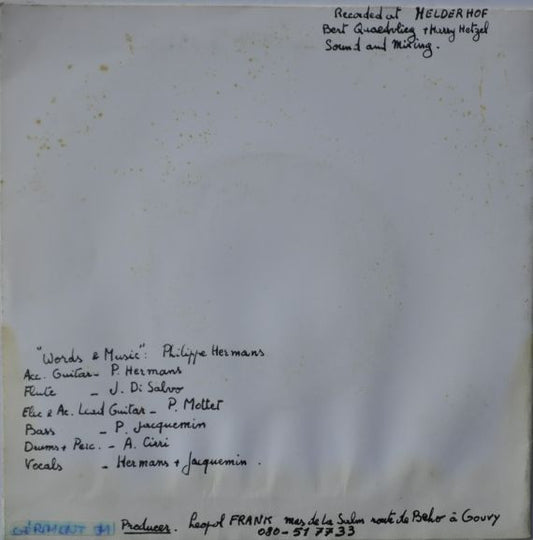 Recorded at HELDERHOF
Bert Quaedvlieg + Harry Hetzel
Sound and Mixing.
"Words & Music": Philippe Hermans
Acc. Guitar - P. Hermans
Flute - J. Di Salvo
Elec & Ac. Lead Guitar - P. Mottet
Bass - P. Jacquemin
Drums + Perc. - A. Cirri
Vocals - Hermans + Jacquemin.
Producer. Leopol FRANK mas de la Salm route de Beho à Gouvy
080-51 77 33